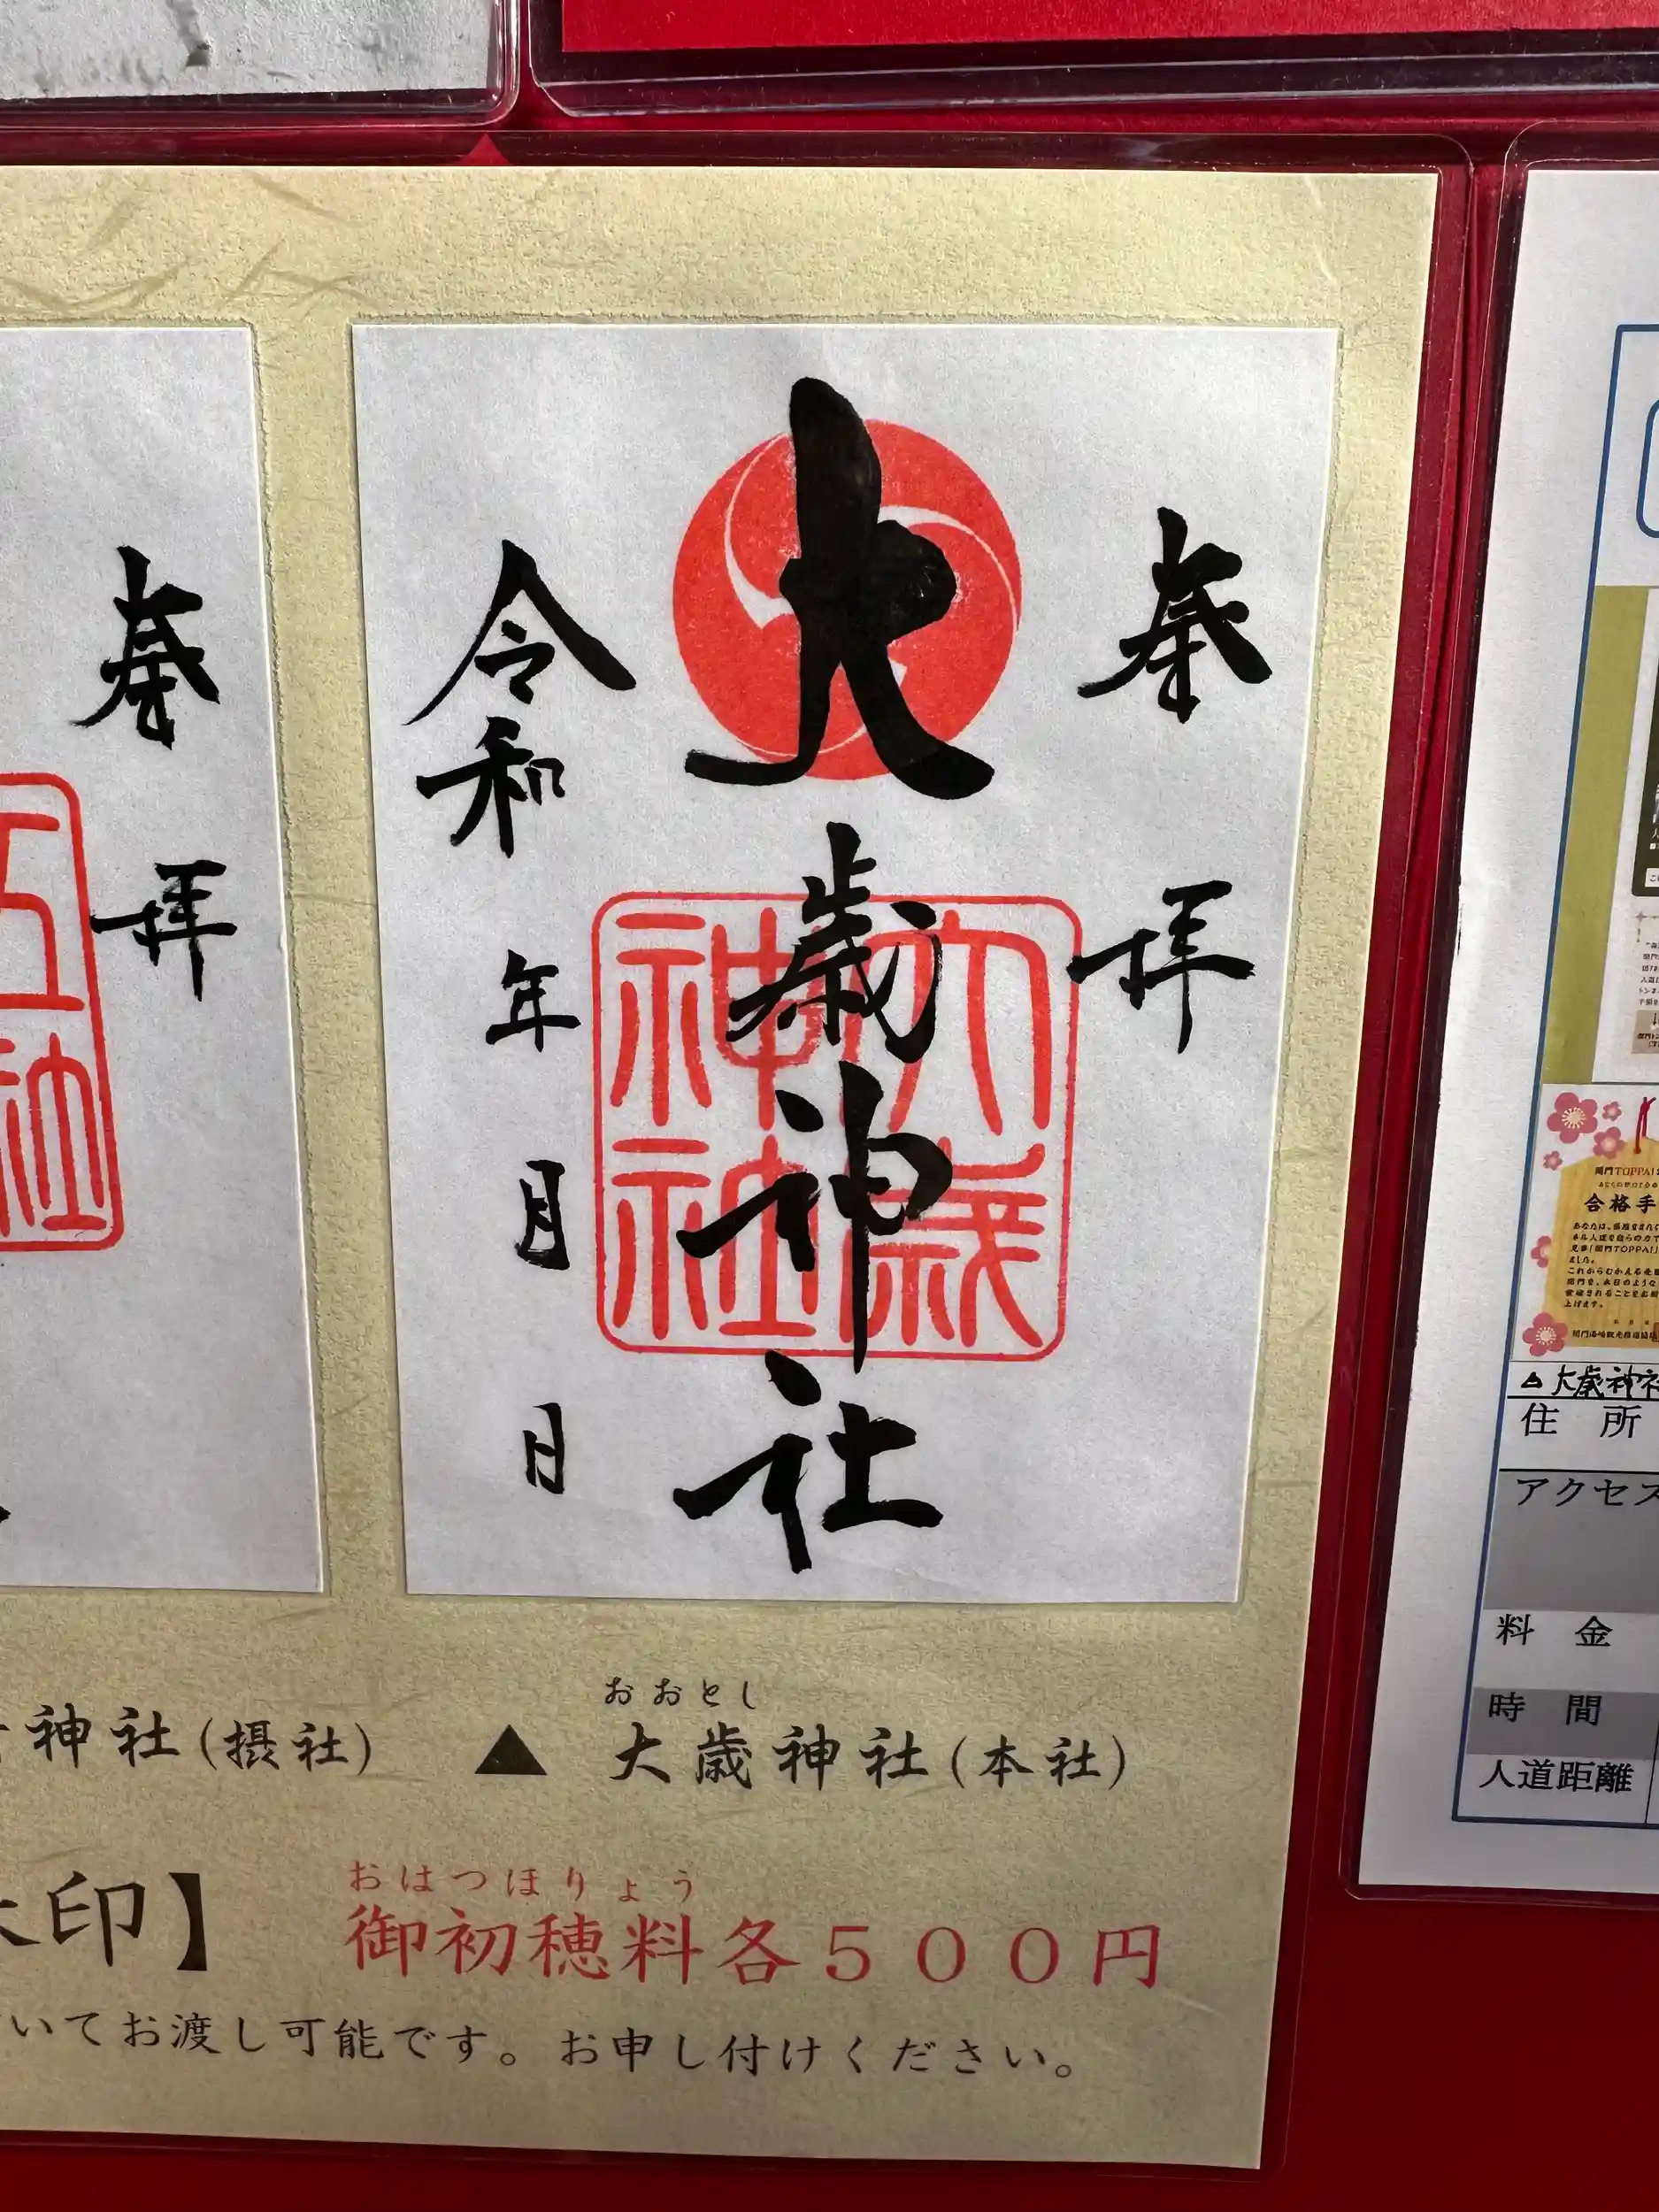 奉拝
大歳神社
令和 年 月 日
大歳神社
奉拝
神社(摂社)
おおとし
▲ 大歳神社(本社)
印】
おはつほりょう
御初穂料各500円
いてお渡し可能です。お申し付けください。
合格手
△大歳神社
住 所
アクセス
料 金
時 間
人道距離